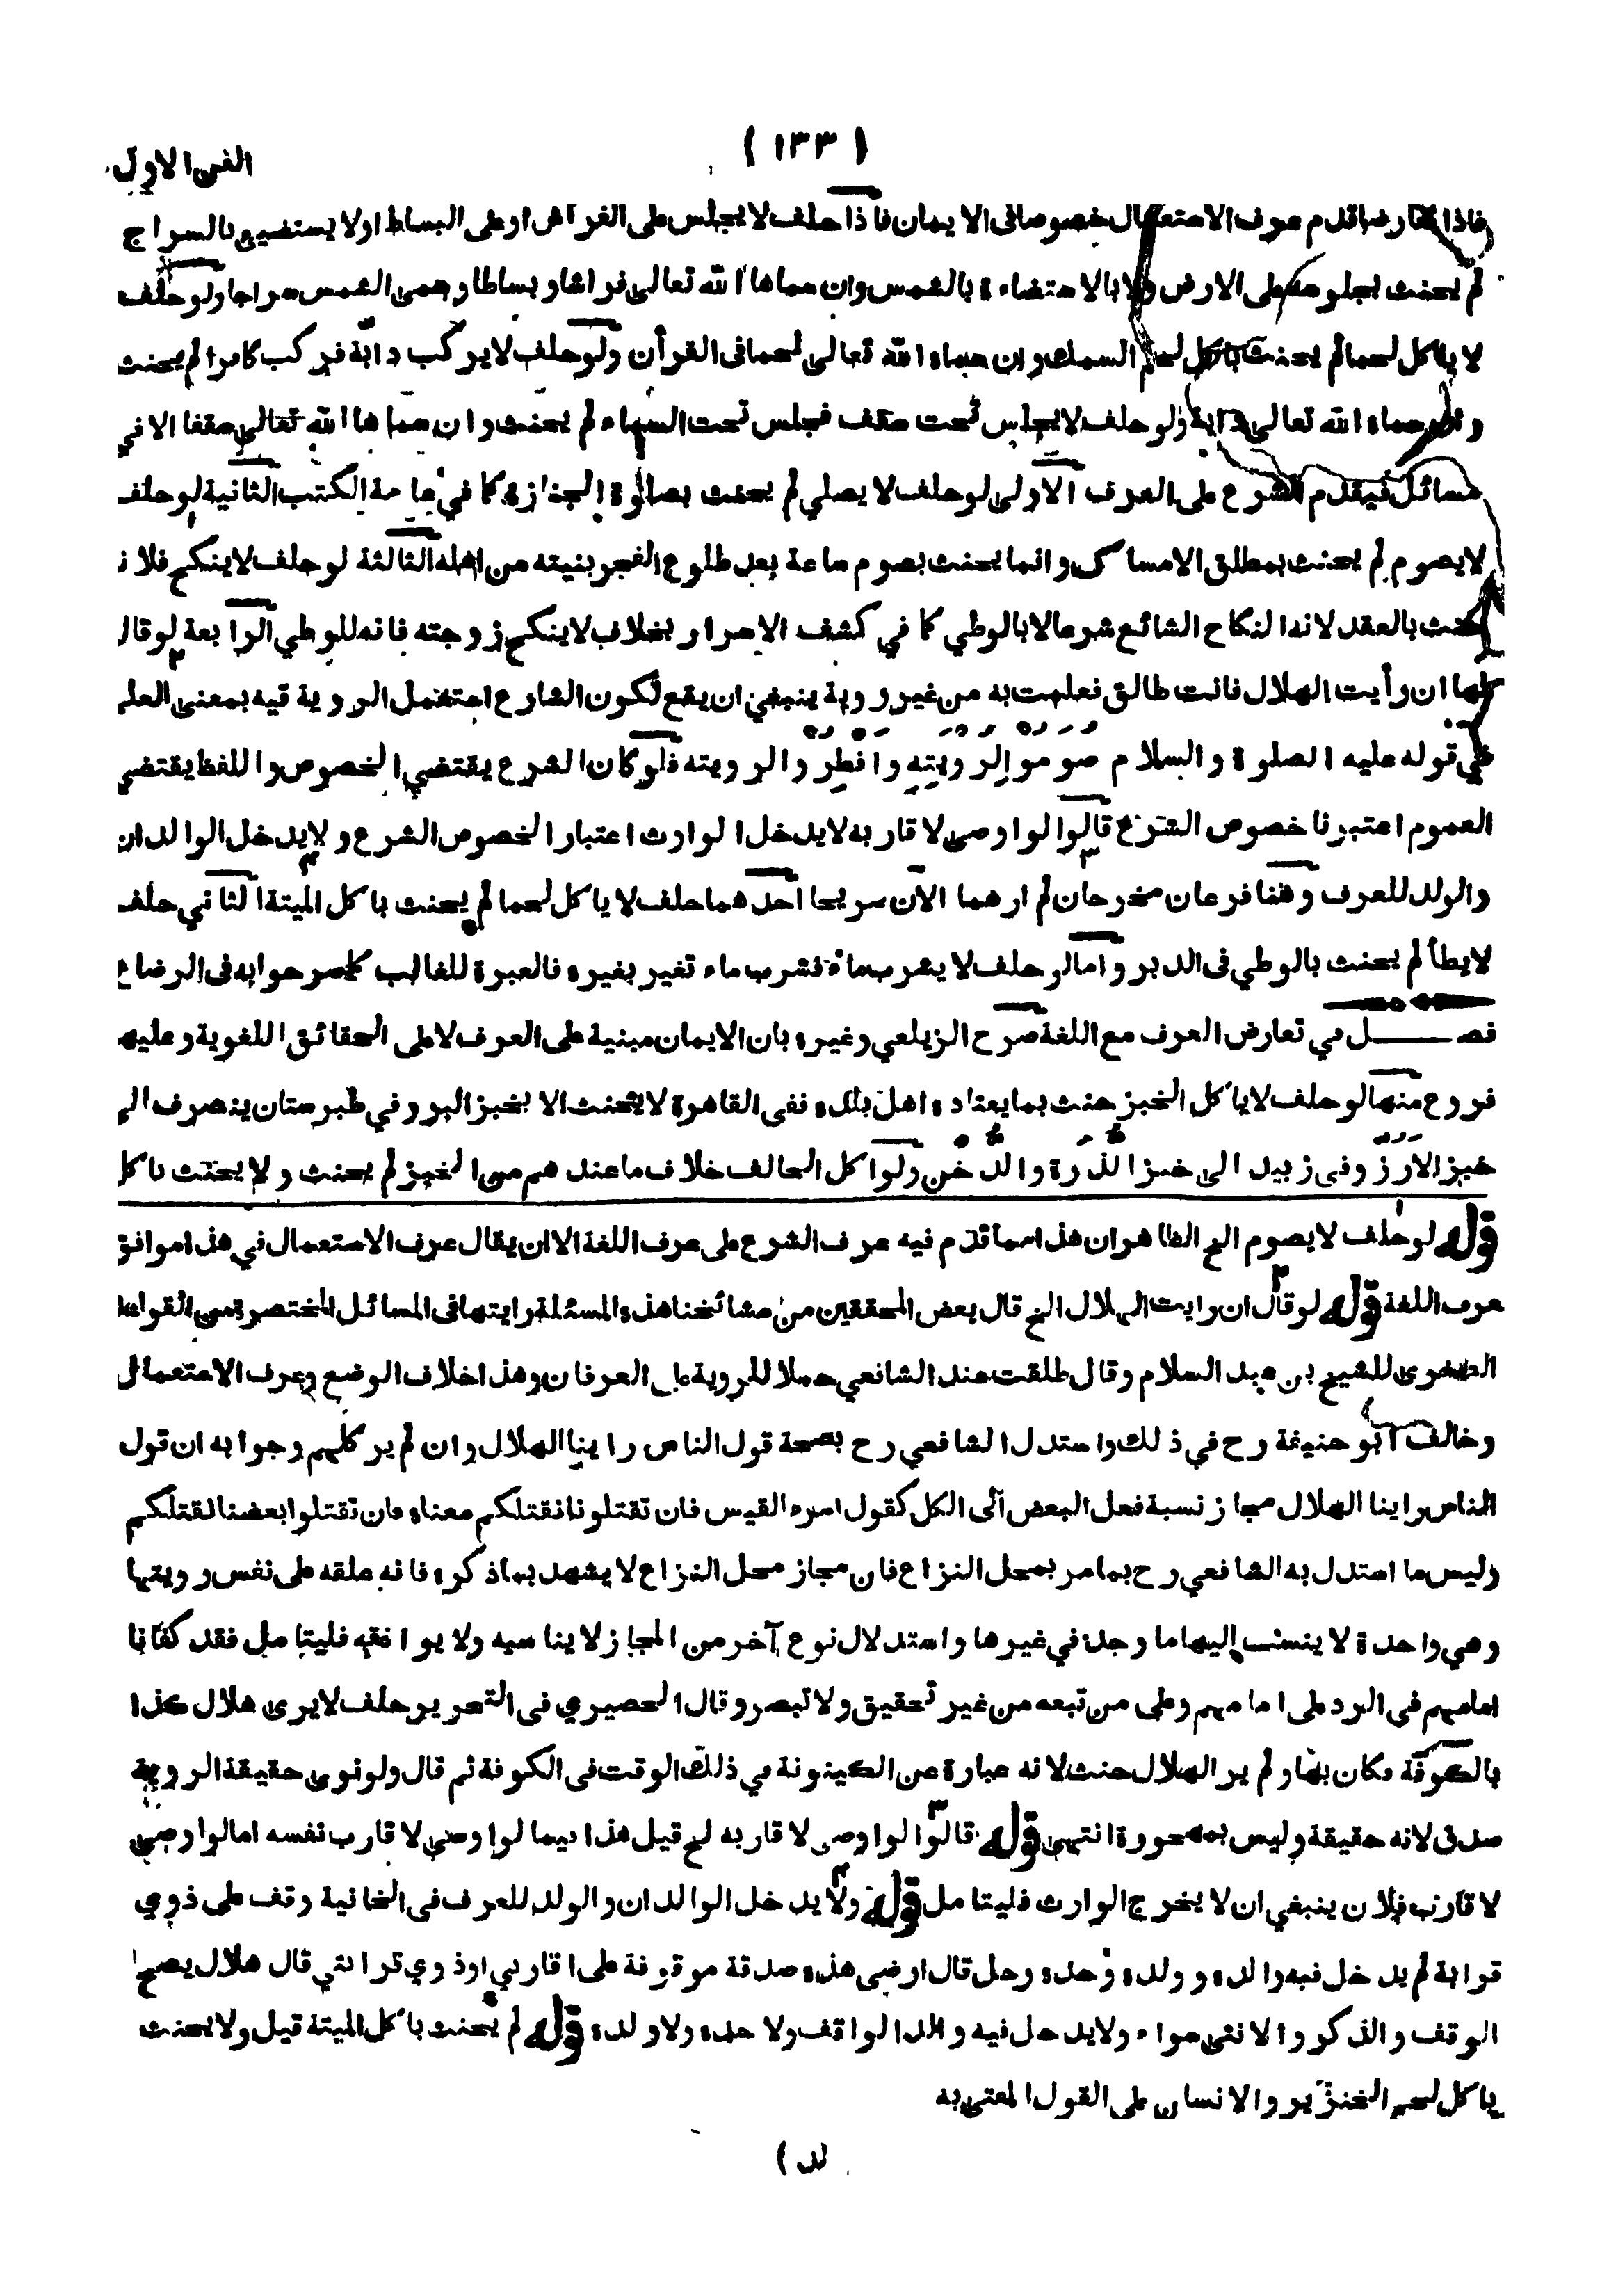 ( ١٣٣ )
الفن الاول
فاذا تعارضا قدم عرف الاستعمال خصوصا فى الايمان فاذا حلف لا يجلس على الفراش او على البساط او لا يستضيئ بالسراج
لم يحنث بجلوسه على الارض ولا بالاستضاءة بالشمس وان سماها الله تعالى فراشا وبساطا وسمى الشمس سراجا ولو حلف
لا ياكل لحما لم يحنث باكل لحم السمك وان سماه الله تعالى لحما فى القرأن ولو حلف لا يركب دابة فركب كافرا لم يحنث
وان سماه الله تعالى دابة ولو حلف لا يجلس تحت سقف فجلس تحت السماء لم يحنث وان سماها الله تعالى سقفا الا في
مسائل فيقدم الشرع على العرف الاولى لو حلف لا يصلي لم يحنث بصلوة الجنازة كما في عامة الكتب الثانية لو حلف
لا يصوم لم يحنث بمطلق الامساك وانما يحنث بصوم ساعة بعد طلوع الفجر بنيته من اهله الثالثة لو حلف لا ينكح فلانة
حنث بالعقد لانه النكاح الشائع شرعا لا بالوطي كما في كشف الاسرار بخلاف لا ينكح زوجته فانه للوطي الرابعة لو قال
لها ان رأيت الهلال فانت طالق فعلمت به من غير روية ينبغي ان يقع لكون الشارع استعمل الروية فيه بمعنى العلم
في قوله عليه الصلوة والسلام صوموا لرويته وافطروا لرويته فلو كان الشرع يقتضي الخصوص واللفظ يقتضي
العموم اعتبرنا خصوص الشرع قالوا لو اوصى لاقاربه لا يدخل الوارث اعتبارا لخصوص الشرع ولا يدخل الوالدان
والولد للعرف وهنا فرعان مخرجان لم ارهما الآن صريحا احدهما حلف لا ياكل لحما لم يحنث باكل الميتة الثاني حلف
لا يطأ لم يحنث بالوطي فى الدبر واما لو حلف لا يشرب ماء فشرب ماء تغير بغيره فالعبرة للغالب كما صرحوا به فى الرضاع
فصـــل في تعارض العرف مع اللغة صرح الزيلعي وغيره بان الايمان مبنية على العرف لا على الحقائق اللغوية وعليها
فروع منها لو حلف لا ياكل الخبز حنث بما يعتاده اهل بلده ففى القاهرة لا يحنث الا بخبز البر وفي طبرستان ينصرف الى
خبز الارز وفى زبيد الى خبز الذرة والدخن ولو اكل الحالف خلاف ما عندهم من الخبز لم يحنث ولا يحنث باكل
قوله لو حلف لا يصوم الخ الظاهر ان هذا مما قدم فيه عرف الشرع على عرف اللغة الا ان يقال عرف الاستعمال في هذا موافق
عرف اللغة قوله لو قال ان رايت الهلال الخ قال بعض المحققين من مشائخنا هذه المسئلة رايتها فى المسائل المختصرة من القواعد
الصغرى للشيخ بن عبد السلام وقال طلقت عند الشافعي حملا للروية على العرفان وهذا خلاف الوضع وعرف الاستعمال
وخالف ابو حنيفة رح في ذلك واستدل الشافعي رح بصحة قول الناس راينا الهلال وان لم ير كلهم وجوابه ان قول
الناس راينا الهلال مجاز نسبة فعل البعض الى الكل كقول امرء القيس فان تقتلونا نقتلكم معناه فان تقتلوا بعضنا نقتلكم
وليس ما استدل به الشافعي رح بما مر بمحل النزاع فان مجاز محل النزاع لا يشهد بما ذكره فانه علقه على نفس رويتها
وهي واحدة لا ينسب اليها ما وجد في غيرها واستدلال نوع آخر من المجاز لا يناسبه ولا يوافقه فليتامل فقد كفانا
امامهم فى الرد على امامهم وعلى من تبعه من غير تحقيق ولا تبصر وقال الحصيري فى التحرير حلف لا يرى هلال كذا
بالكوفة فكان بها ولم ير الهلال حنث لانه عبارة عن الكينونة في ذلك الوقت فى الكوفة ثم قال ولو نوى حقيقة الروية
صدق لانه حقيقة وليس بمهجورة انتهى قوله قالوا لو اوصى لاقاربه الخ قيل هذا فيما لو اوصى لاقارب نفسه اما لو اوصى
لاقارب فلان ينبغي ان لا يخرج الوارث فليتامل قوله ولا يدخل الوالدان والولد للعرف فى الخانية وقف على ذوي
قرابة لم يدخل فيه والده وولده وجده رجل قال ارضى هذه صدقة موقوفة على اقاربي او ذوي قرابتي قال هلال يصح
الوقف والذكور والانثى سواء ولا يدخل فيه والد الواقف ولا جده ولا ولده قوله لم يحنث باكل الميتة قيل ولا يحنث
باكل لحم الخنزير والانسان على القول المفتى به